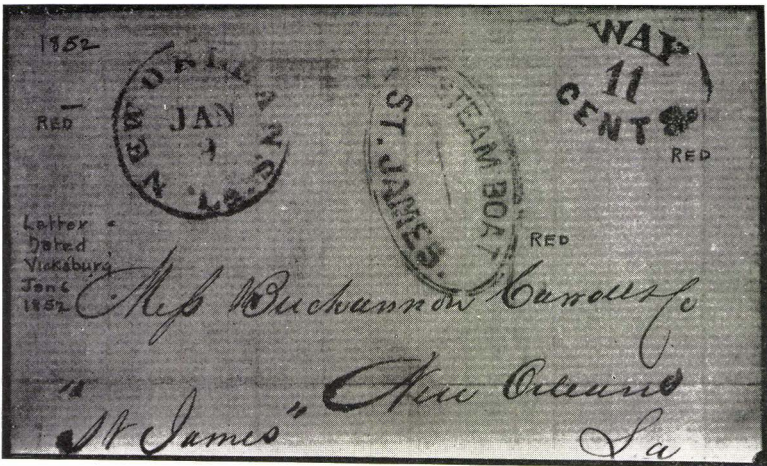 1852
NEW ORLEANS La.
JAN
9
RED
STEAM BOAT
ST. JAMES.
RED
WAY
11
CENTS
RED
Letter
Dated
Vicksburg
Jan 6
1852
Mess Buchannon Carroll & Co
New Orleans
La
"St James"